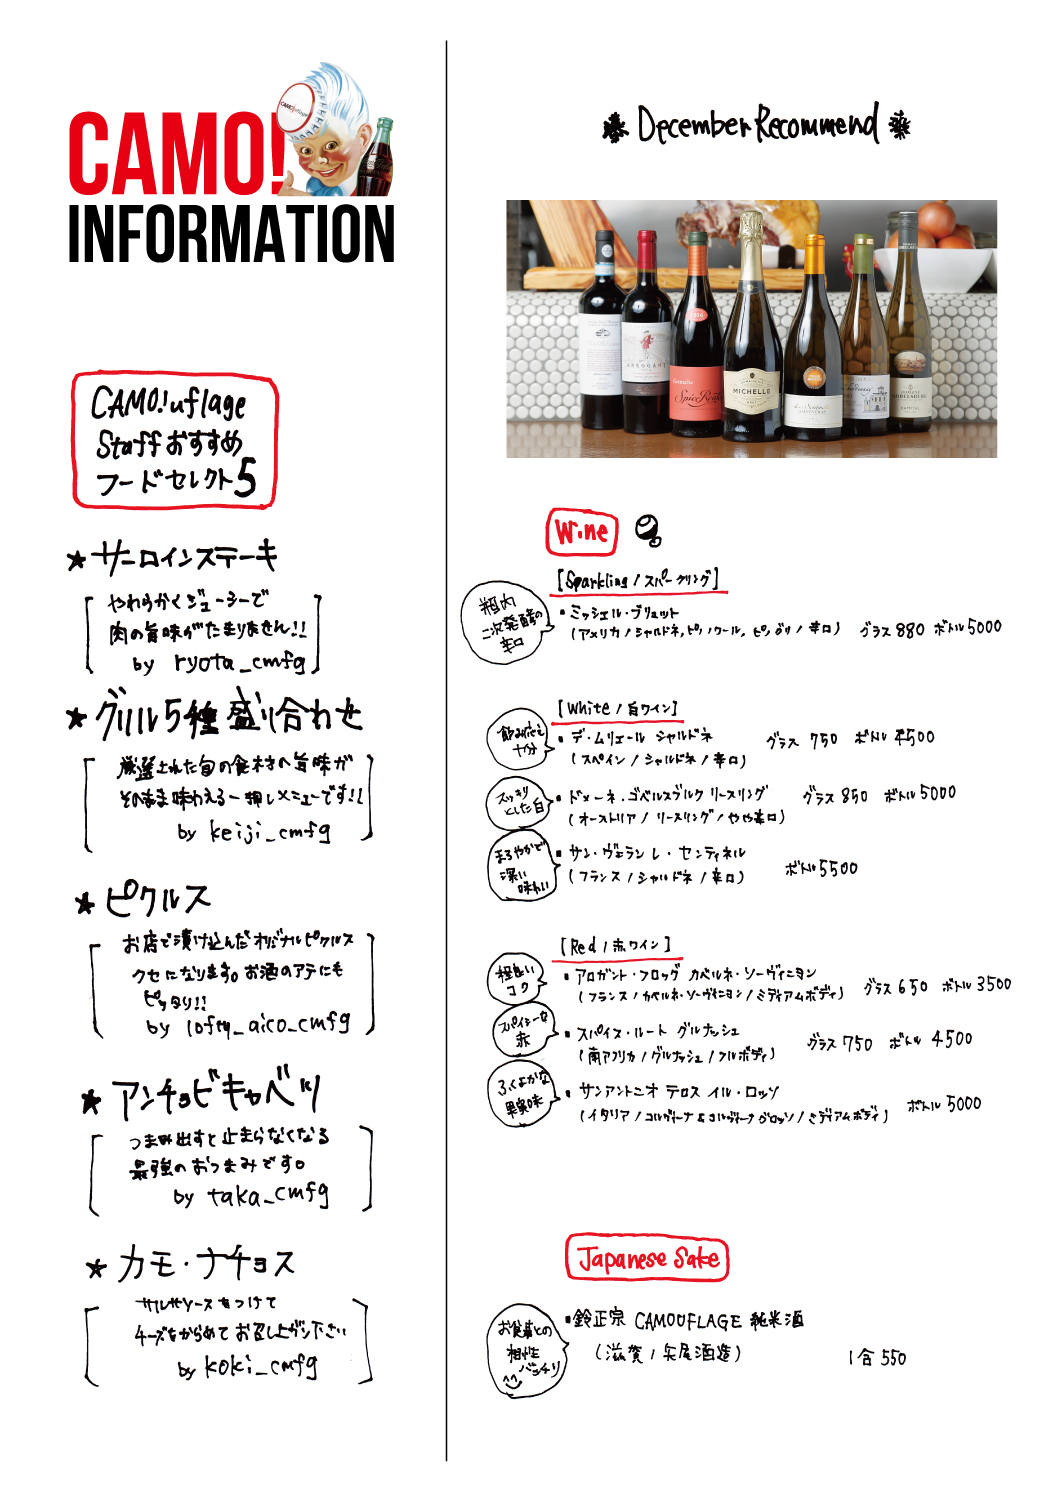 CAMO!
INFORMATION
CAMO!uflage
Staff おすすめ
フードセレクト5
★ サーロインステーキ
やわらかくジューシーで
肉の旨味がたまりません!!
by ryota_cmfg
★ グリル5種盛り合わせ
厳選された旬の食材の旨味が
そのまま味わえる一押しメニューです!!
by keiji_cmfg
★ ピクルス
お店で漬け込んだオリジナルピクルス
クセになります。お酒のアテにも
ピッタリ!!
by lofty_aico_cmfg
★ アンチョビキャベツ
つまみ出すと止まらなくなる
最強のおつまみです。
by taka_cmfg
★ カモ・ナチョス
サルサソースをつけて
チーズをからめてお召し上がり下さい
by koki_cmfg
December Recommend
MICHELLE
BRUT
ARROGANT
Grenache
Spice Route
Wine
[Sparkling / スパークリング]
瓶内
二次発酵の
辛口
・ミッシェル・ブリュット
(アメリカ / シャルドネ, ピノノワール, ピノグリ / 辛口) グラス 880 ボトル 5000
[White / 白ワイン]
飲み応え
十分
・デ・ムリエール シャルドネ グラス 750 ボトル 4500
(スペイン / シャルドネ / 辛口)
スッキリ
とした白
・ドメーネ・ゴベルスブルク リースリング グラス 850 ボトル 5000
(オーストリア / リースリング / やや辛口)
まろやかで
深い
味わい
・サン・ヴェラン レ・センティネル ボトル 5500
(フランス / シャルドネ / 辛口)
[Red / 赤ワイン]
程良い
コク
・アロガント・フロッグ カベルネ・ソーヴィニヨン グラス 650 ボトル 3500
(フランス / カベルネ・ソーヴィニヨン / ミディアムボディ)
スパイシーな
赤
・スパイス・ルート グルナッシュ グラス 750 ボトル 4500
(南アフリカ / グルナッシュ / フルボディ)
ふくよかな
果実味
・サンアントニオ テロス イル・ロッソ ボトル 5000
(イタリア / コルヴィーナ & コルヴィーナ グロッソ / ミディアムボディ)
Japanese Sake
お食事との
相性
バッチリ
・鈴正宗 CAMOUFLAGE 純米酒
(滋賀 / 矢尾酒造) 1合 550